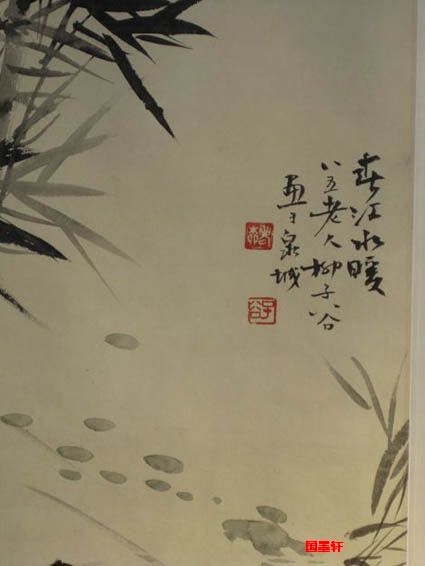 春江水暖
八五老人柳子谷
画于泉城
子谷
国墨轩